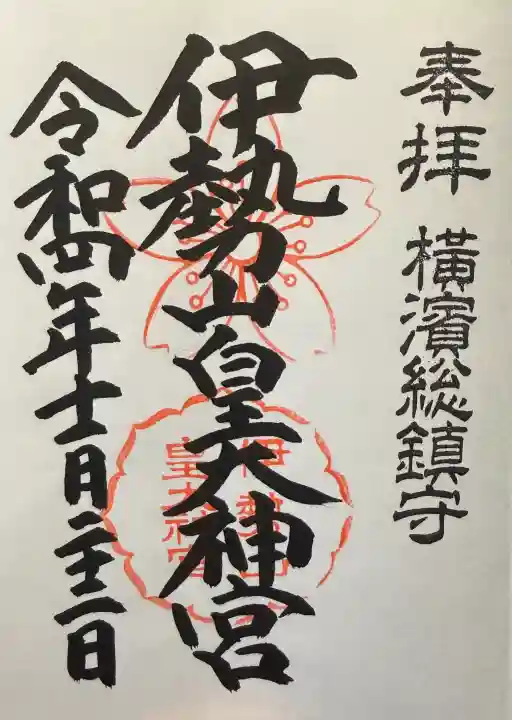 奉拝 横濱総鎮守
伊勢山皇大神宮
令和四年十一月二十三日
伊勢山
皇大神宮